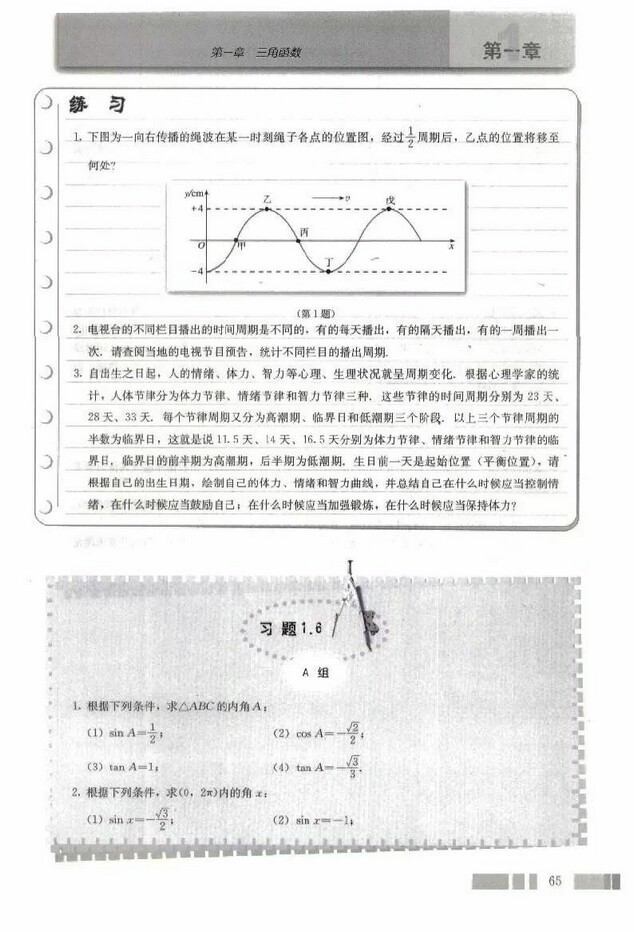 第一章 三角函数
第一章
练 习
1. 下图为一向右传播的绳波在某一时刻绳子各点的位置图，经过1/2周期后，乙点的位置将移至
何处?
y/cm
+4
乙
v
戊
O
甲
丙
x
-4
丁
(第1题)
2. 电视台的不同栏目播出的时间周期是不同的，有的每天播出，有的隔天播出，有的一周播出一
次. 请查阅当地的电视节目预告，统计不同栏目的播出周期.
3. 自出生之日起，人的情绪、体力、智力等心理、生理状况就呈周期变化. 根据心理学家的统
计，人体节律分为体力节律、情绪节律和智力节律三种. 这些节律的时间周期分别为 23 天、
28 天、33 天. 每个节律周期又分为高潮期、临界日和低潮期三个阶段. 以上三个节律周期的
半数为临界日，这就是说 11.5 天、14 天、16.5 天分别为体力节律、情绪节律和智力节律的临
界日. 临界日的前半期为高潮期，后半期为低潮期. 生日前一天是起始位置（平衡位置），请
根据自己的出生日期，绘制自己的体力、情绪和智力曲线，并总结自己在什么时候应当控制情
绪，在什么时候应当鼓励自己；在什么时候应当加强锻炼，在什么时候应当保持体力?
习 题 1.6
A 组
1. 根据下列条件，求△ABC 的内角 A：
(1) sin A=1/2； (2) cos A=-√2/2；
(3) tan A=1； (4) tan A=-√3/3.
2. 根据下列条件，求(0，2π)内的角 x：
(1) sin x=-√3/2； (2) sin x=-1；
65